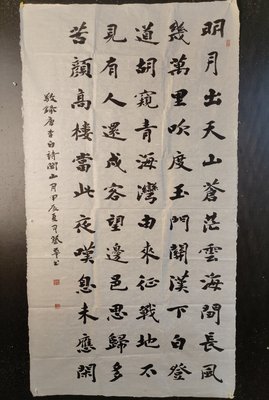 明月出天山蒼茫雲海間長風
幾萬里吹度玉門關漢下白登
道胡窺青海灣由來征戰地不
見有人還戍客望邊邑思歸多
苦顏高樓當此夜嘆息未應閑
敬錄唐李白詩關山月甲辰夏月